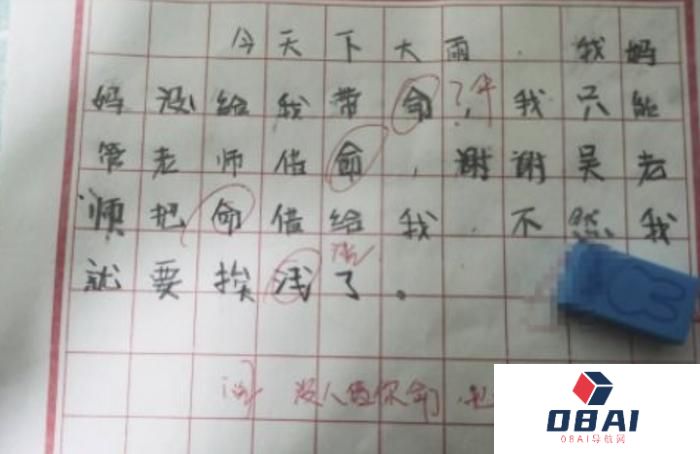 今天下大雨.我妈
妈没给我带命,?伞我只能
管老师借命,谢谢吴老
师把命借给我.不然我
就要挨浅了。
没人借你命
OBAI
OBAI导航网